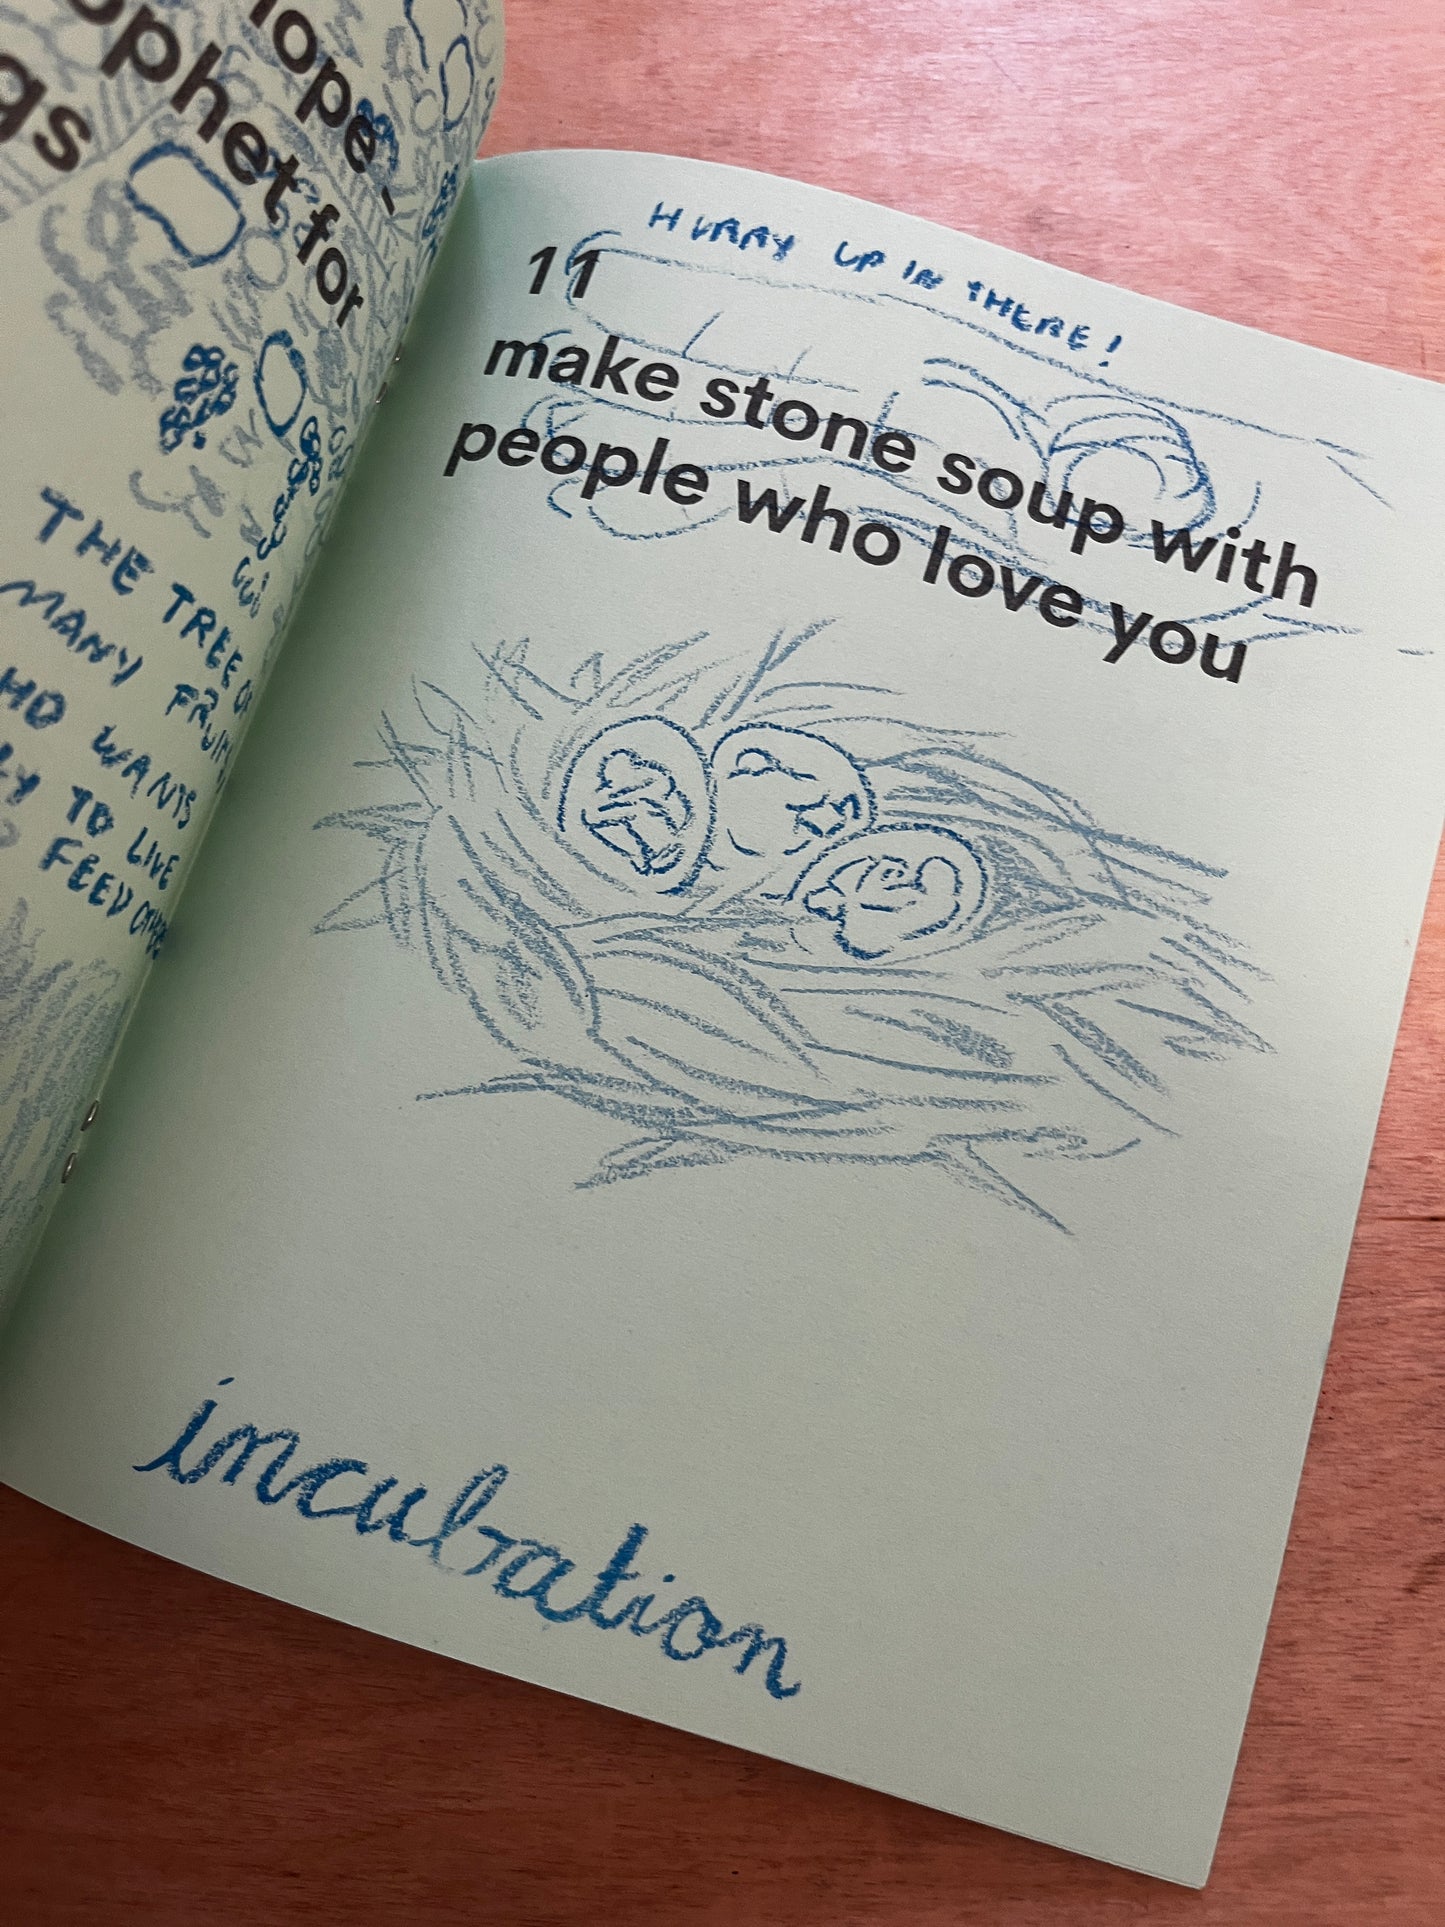 hope-
ophet for
gs
THE TREE OF
MANY FRUITS
WANTS
TO LIVE
FEED
HURRY UP IN THERE!
11
make stone soup with
people who love you
incubation